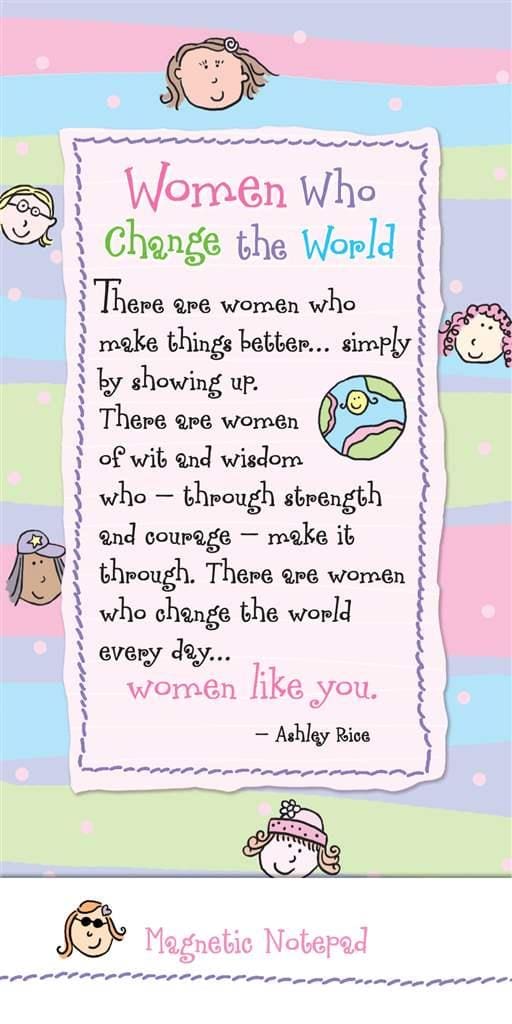 Women Who
Change the World
There are women who
make things better... simply
by showing up.
There are women
of wit and wisdom
who — through strength
and courage — make it
through. There are women
who change the world
every day...
women like you.
— Ashley Rice
Magnetic Notepad